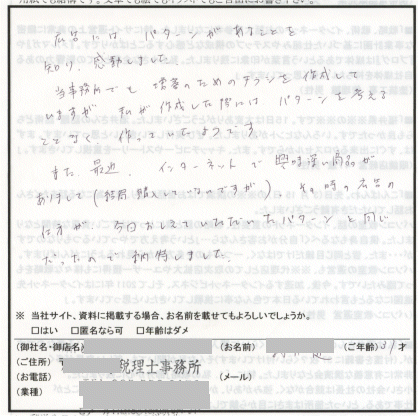 広告には パターンがあることを
知り、感動しました
当事務所でも 増客のためのチラシを作成して
いますが 私が作成した際には パターンを考える
ことなく、作っていたようです。
また、最近、インターネットで 興味深い商品が
ありまして(結局購入していないのですが)、その時の広告の
仕方が、今日おしえていただいたパターンと同じ
だったので 納得しました。
※ 当社サイト、資料に掲載する場合、お名前を載せてもよろしいでしょうか。
□はい □匿名なら可 □年齢はダメ
(御社名・御店名) (お名前) (ご年齢) 31 才
(ご住所) 〒 税理士事務所
(お電話) (メール)
(業種)